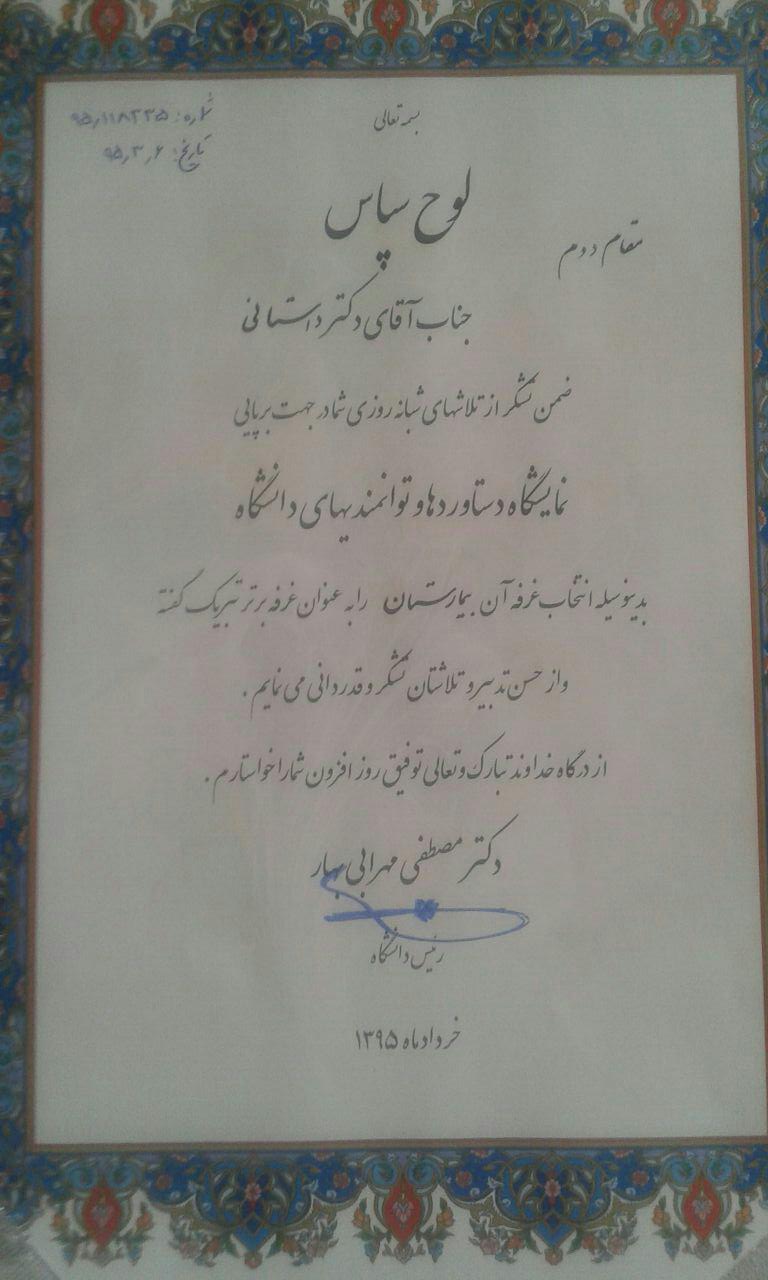 بسمه تعالی
شماره: ۹۵٫۱۱۸۲۳۵
تاریخ: ۹۵٫۳٫۶
لوح سپاس
مقام دوم
جناب آقای دکتر داستانی
ضمن تشکر از تلاشهای شبانه روزی شما در جهت برپایی
نمایشگاه دستاوردها و توانمندیهای دانشگاه
بدینوسیله انتخاب غرفه آن بیمارستان را به عنوان غرفه برتر تبریک گفته
و از حسن تدبیر و تلاشتان تشکر و قدردانی می نمایم .
از درگاه خداوند تبارک و تعالی توفیق روز افزون شما را خواستارم .
دکتر مصطفی مهرابی بهار
رئیس دانشگاه
خرداد ماه ۱۳۹۵